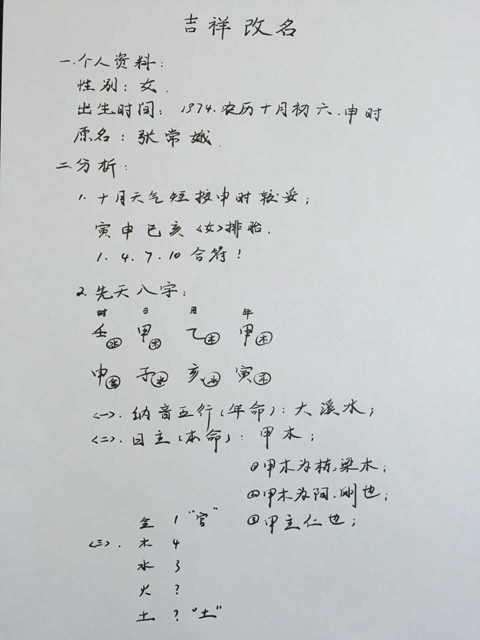 吉祥改名
一.个人资料:
性别: 女.
出生时间: 1974.农历十月初六.申时
原名: 张常娥.
二分析:
1. 十月天气短按申时较妥;
寅申巳亥<女>排胎.
1.4.7.10合符!
2.先天八字:
时 日 月 年
壬水 甲木 乙木 甲木
申金 子水 亥水 寅木
<一>. 纳音五行(年命): 大溪水;
<二>. 日主(本命): 甲木;
①甲木为栋,梁木;
②甲木为阳.刚也;
③甲主仁也;
金 1 "官"
<三>. 木 4
水 3
火 ?
土 ? "土"